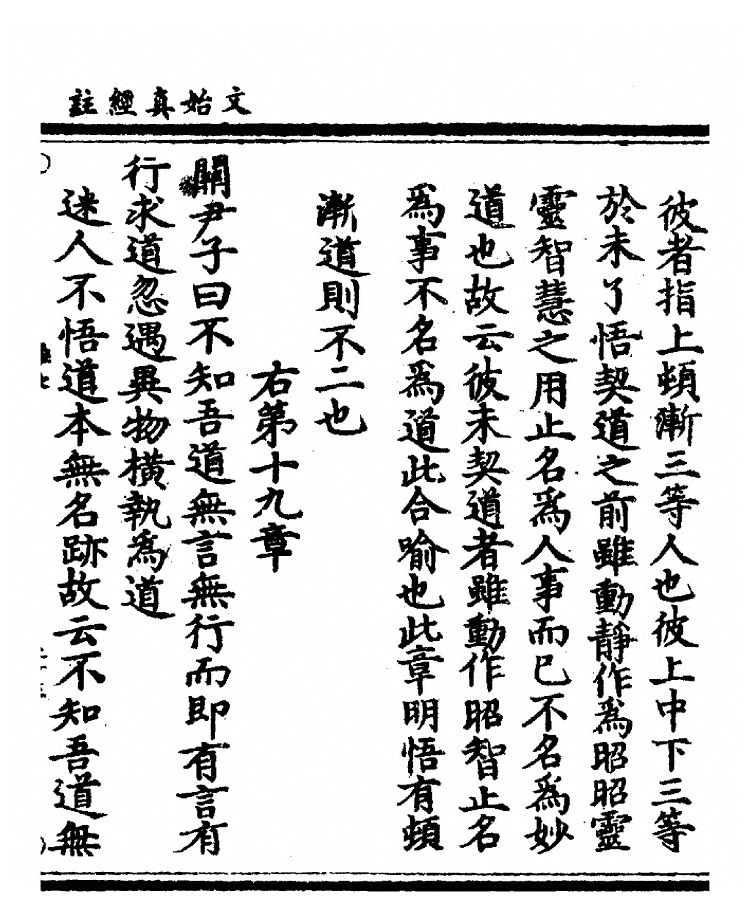 文始真經註
彼者指上頓漸三等人也彼上中下三等
於未了悟契道之前雖動靜作爲昭昭靈
靈智慧之用止名爲人事而已不名爲妙
道也故云彼未契道者雖動作昭智止名
爲事不名爲道此合喻也此章明悟有頓
漸道則不二也
右第十九章
關尹子曰不知吾道無言無行而即有言有
行求道忽遇異物橫執爲道
迷人不悟道本無名跡故云不知吾道無